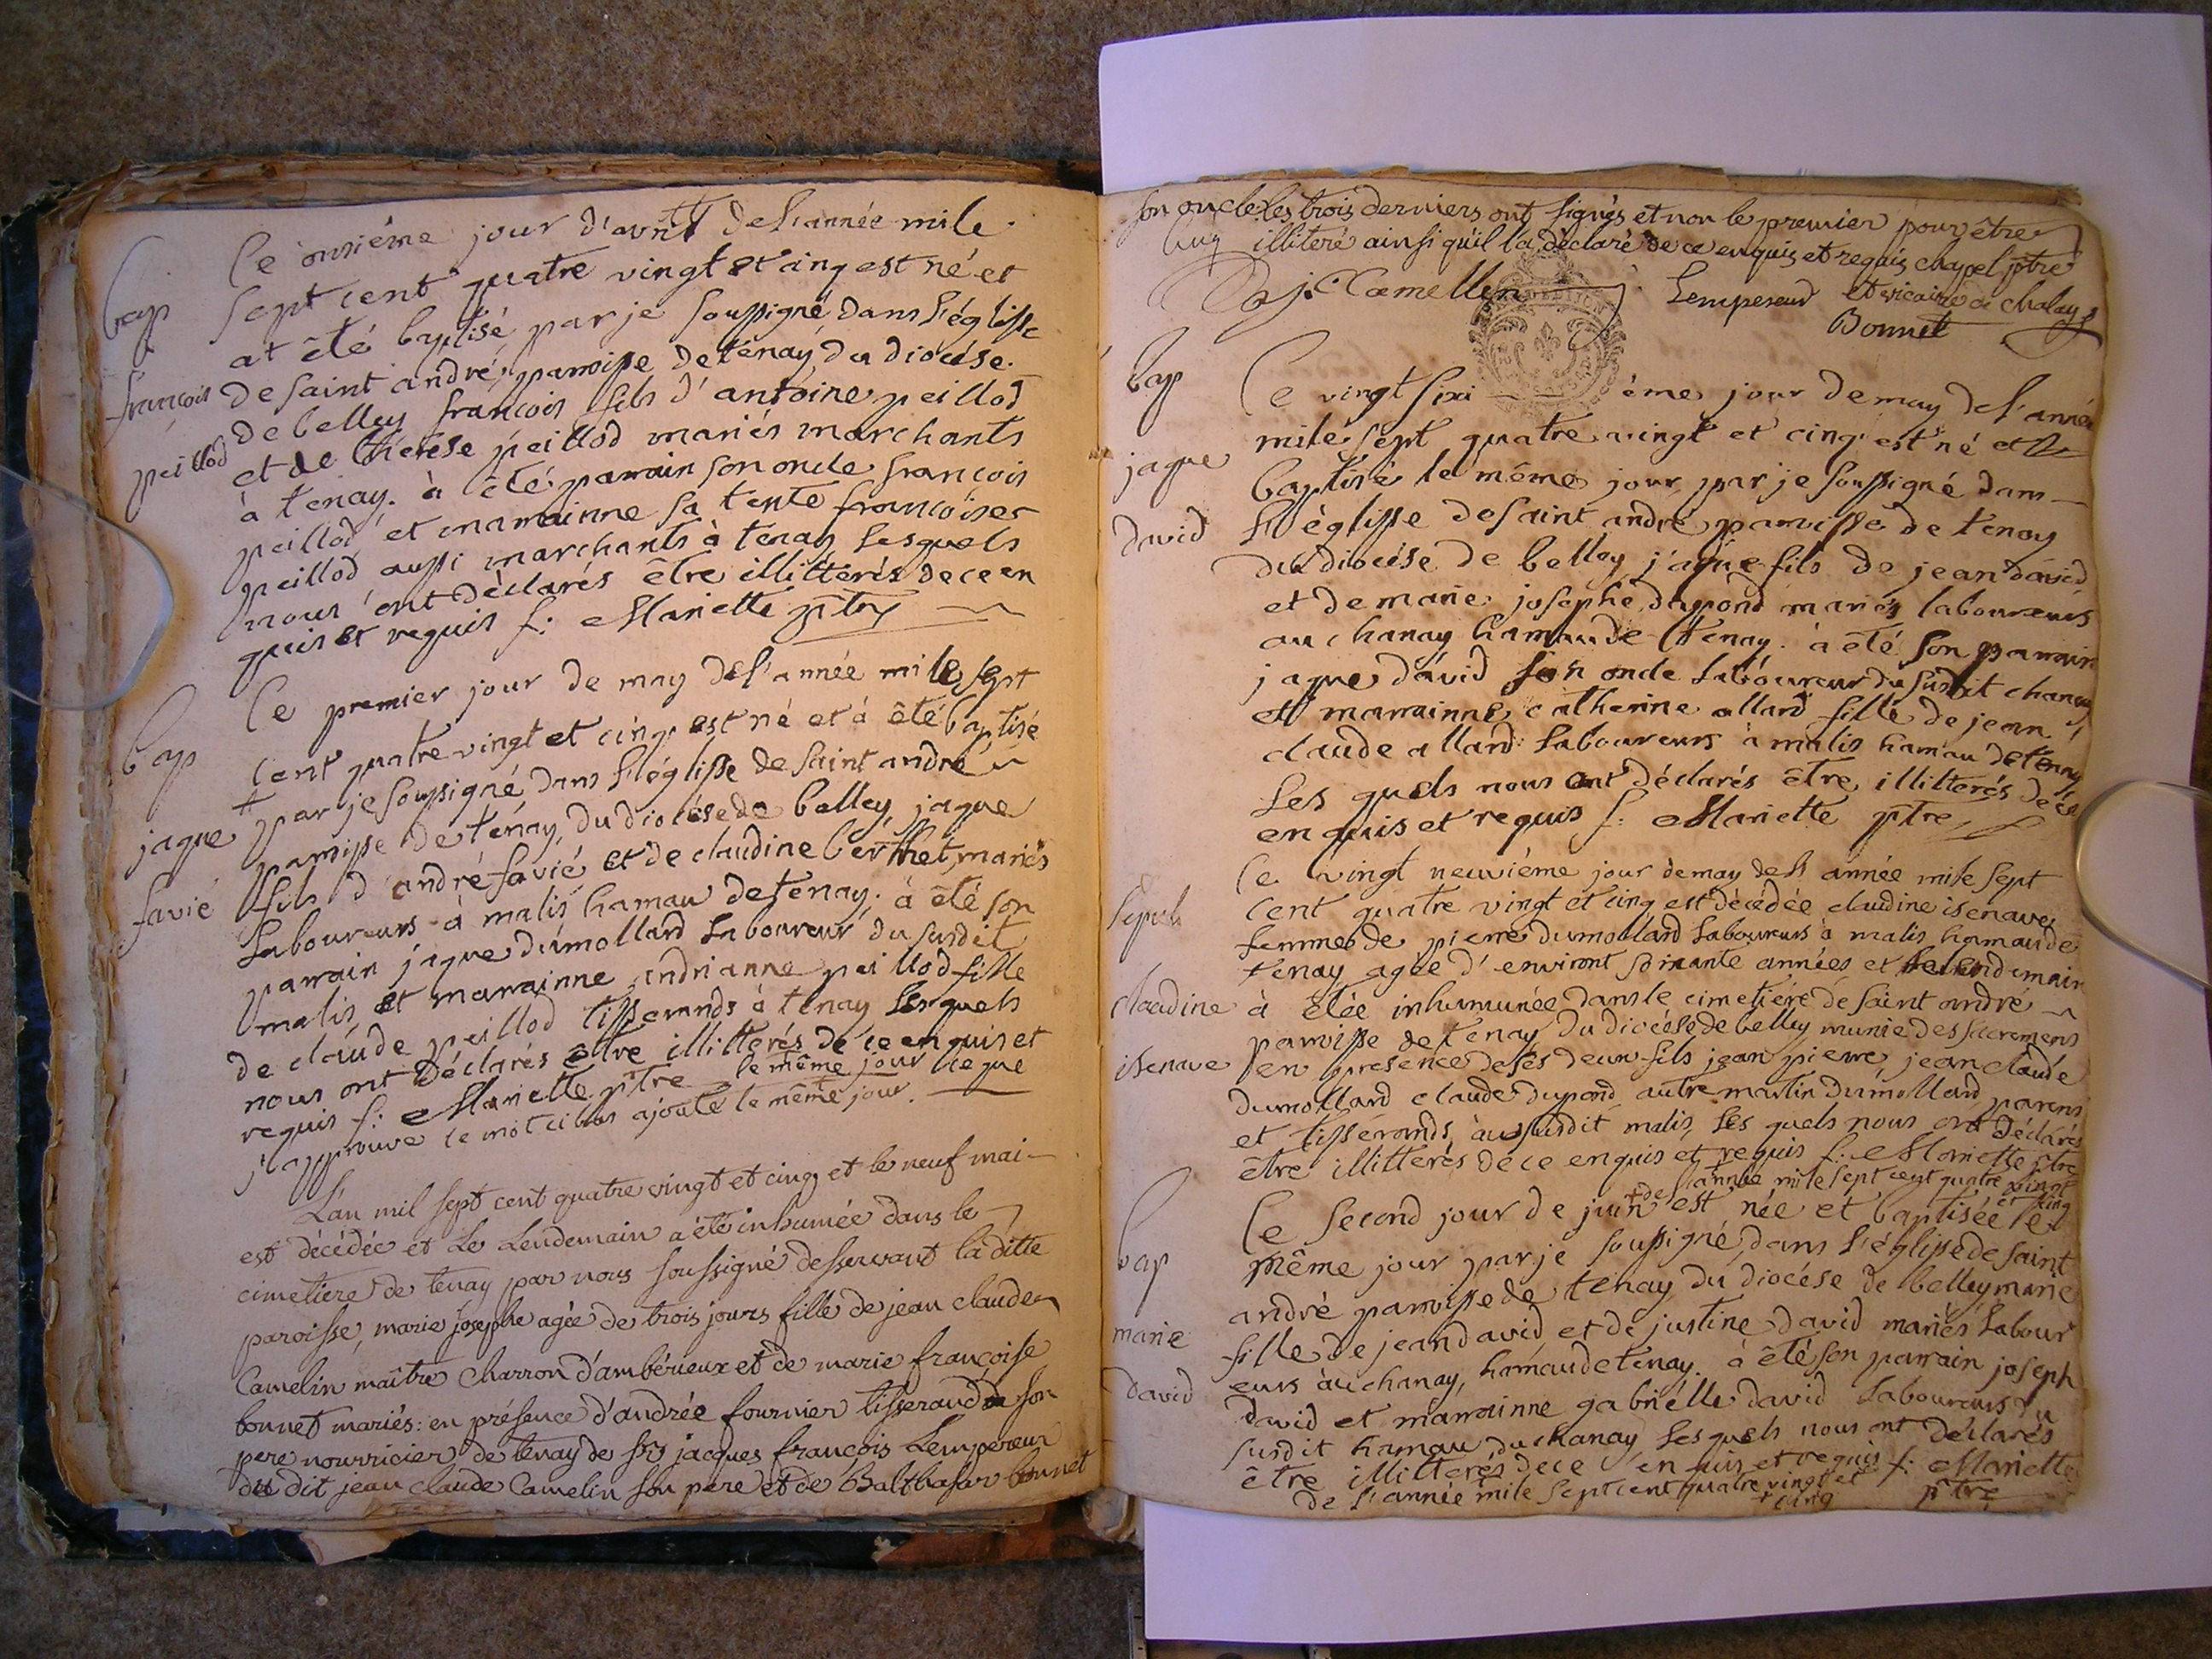 Ce onsiéme jour d'avril de l'année mile
bap
sept cent quatre vingt et cinq est né et
at êté baptisé par je soussigné dans l'églisse
de saint andré, paroisse de tenay du diocése.
françois
peillod
de belley françois fils d'antoine peillod
et de thérése peillod mariés marchants
à tenay. à êté parrain son oncle françois
peillod et marrainne sa tente françoises
peillod aussi marchants à tenay Lesquels
nous ont déclarés être illitterés de ce en
quis et requis f: Mariette ptre
Ce premier jour de may de l'année mile sept
bap
cent quatre vingt et cinq est né et à êté baptisé
+ par je soussigné dans l'églisse de saint andré
jaque
paroisse de tenay, du diocése de belley, jaque
favié
fils d'andré favié et de claudine berthet, mariés
Laboureurs à malis hamau de tenay. à êté son
parrain jaque dumollard Laboureur du susdit
malis et marrainne andrianne peillod fille
de claude peillod tisserands à tenay Lesquels
nous ont déclarés être illitterés de ce enquis et
requis f: Mariette ptre le même jour ce que
j'approuve ce mot ci bas ajouté le même jour.
L'an mil sept cent quatre vingt et cinq et le neuf mai
est décédée et Le Lendemain a été inhumée dans le
cimetiere de tenay par nous soussigné desservant la ditte
paroisse, marie josephe agée de trois jours fille de jean claude
Camelin maître charron d'ambérieux et de marie françoise
bonnet mariés: en présence d'andrée fournier tisserand son
pere nourricier de tenay de sr jacques françois Lempereur
du dit jean claude Camelin son pere et de Balthasar bonnet
son oncle les trois derniers ont signés et non le premier pour être
illiteré ainsi qu'il la déclaré de ce enquis et requis chapel ptre
j: C Camellin Lempereur et vicaire de chaley
Bonnet
bap
Ce vingt sixi éme jour de may de l'année
mile sept quatre vingt et cinq est né et
jaque
baptisé le même jour par je soussigné dans
david
L'églisse de saint andré paroisse de tenay
du diocése de belley jaque fils de jean david
et de marie josephe dupond mariés laboureurs
au chanay hamau de tenay. à êté son parrain
jaque david son oncle Laboureur du susdit chanay
et marrainne catherine allard fille de jean
claude allard Laboureurs à malis hamau de tenay
Les quels nous ont déclarés être illitterés de ce
enquis et requis f: Mariette ptre
Ce vingt neuviéme jour de may de L'année mile sept
Sepult
cent quatre vingt et cinq est décédée claudine isenave
femme de pierre dumollard Laboureurs à malis hamau de
tenay agée d'environt soixante années et le lendemain
claudine
à êtée inhumunée dans le cimetiére de saint andré
paroisse de tenay du diocése de belley munie des sacremens
isenave
en presence de ses deux fils jean pierre, jean claude
dumollard claude dupond autre martin dumollard parens
et tisserands au susdit malis, Les quels nous ont déclarés
être illitterés de ce enquis et requis f: Mariette ptre
+ de l'année mile sept cent quatre vingt
et cinq
Ce second jour de juin est née et baptisée le
bap
même jour par je soussigné dans l'églisse de saint
andré paroisse de tenay du diocése de belley marie
marie
fille de jean david et de justine david mariés Labour
david
eurs au chanay, hamau de tenay. à êté son parrain joseph
david et marrainne gabriélle david Laboureurs du
susdit hamau du chanay Les quels nous ont déclarés
être illitterés de ce en quis et requis f: Mariette
de l'année mile sept cent quatre vingt et ptre
+ cinq